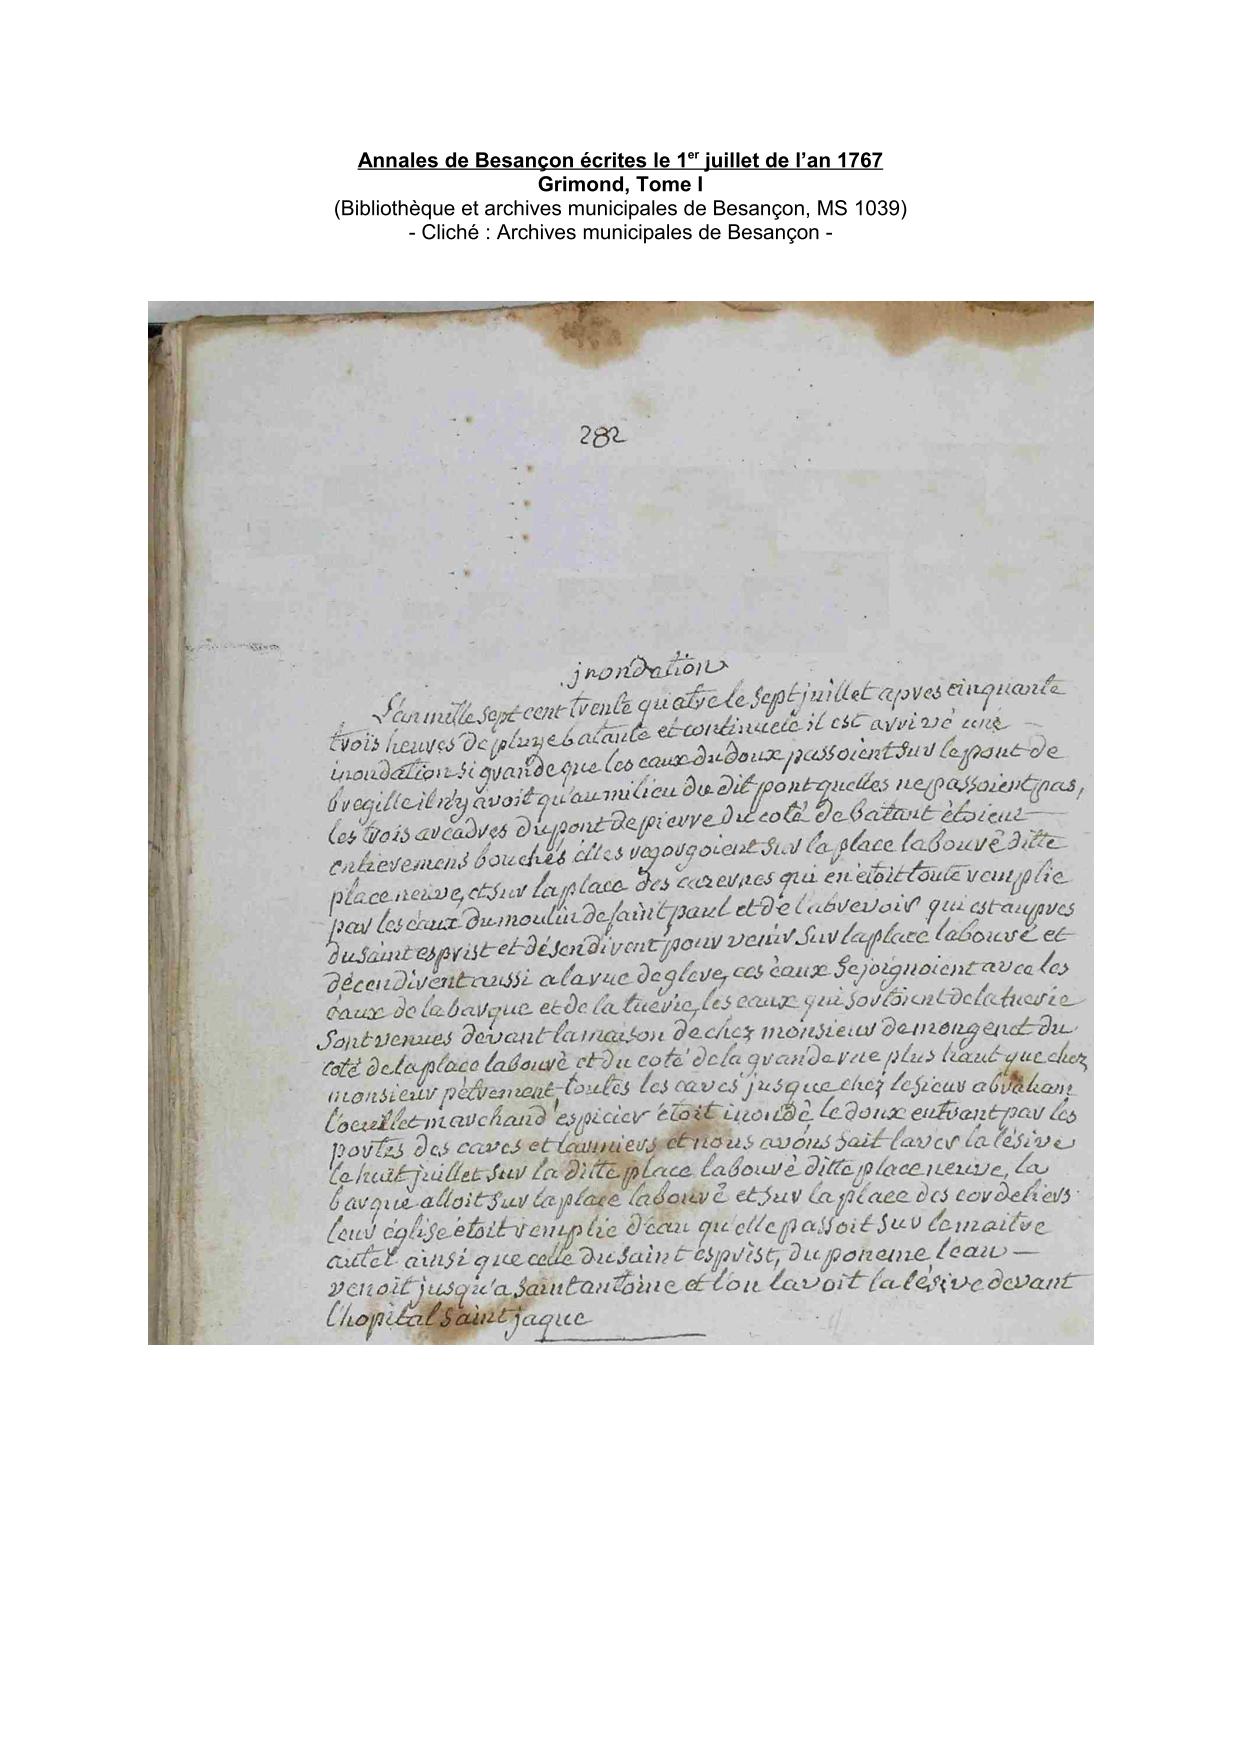 Annales de Besançon écrites le 1er juillet de l'an 1767
Grimond, Tome I
(Bibliothèque et archives municipales de Besançon, MS 1039)
- Cliché : Archives municipales de Besançon -
282
jnondation
L'an mille sept cent trente quatre le sept juillet apres cinquante
trois heures de pluye batante et continuele il est arrivé une
inondation si grande que les eaux du doux passoient sur le pont de
bregille il n'y avoit qu'au milieu du dit pont quelles ne passoient pas,
les trois arcadres du pont de pierre du coté de batant étoient
entierement bouchés elles regorgoient sur la place labourè ditte
place neuve, et sur la place des cazernes qui en étoit toute remplie
par les eaux du moulin de saint paul et de l'abrevoir qui est aupres
du saint esprist et désendirent pour venir sur la place labouré et
décendirent aussi a la rue de glere, ces èaux se joignoient avec les
éaux de la barque et de la tuerie, les eaux qui sortoient de la tuerie
sont venues devant la maison de chez monsieur demongenet du
coté de la place labourè et du coté de la grande rue plus haut que chez
monsieur pètrement toutes les caves jusque chez le sieur abraham
l'oeuillet marchand espicier étoit inondè le doux entrant par les
portes des caves et larmiers et nous avons fait laver la lésive
le huit juillet sur la ditte place labourè ditte place neuve, la
barque alloit sur la place labourè et sur la place des cordeliers
leur église étoit remplie d'eau qu'elle passoit sur le maitre
autel ainsi que celle du saint esprist, du poneme l'eau
venoit jusqu'a saint antoine et l'on lavoit la lésive devant
l'hopital saint jaque